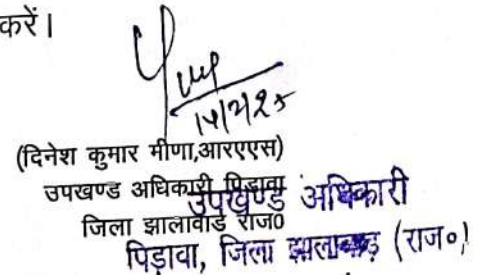 करें।
(दिनेश कुमार मीणा,आरएएस)
उपखण्ड अधिकारी पिडावा
जिला झालावाड राज0
उपखण्ड अधिकारी
पिड़ावा, जिला झालावाड़ (राज०)